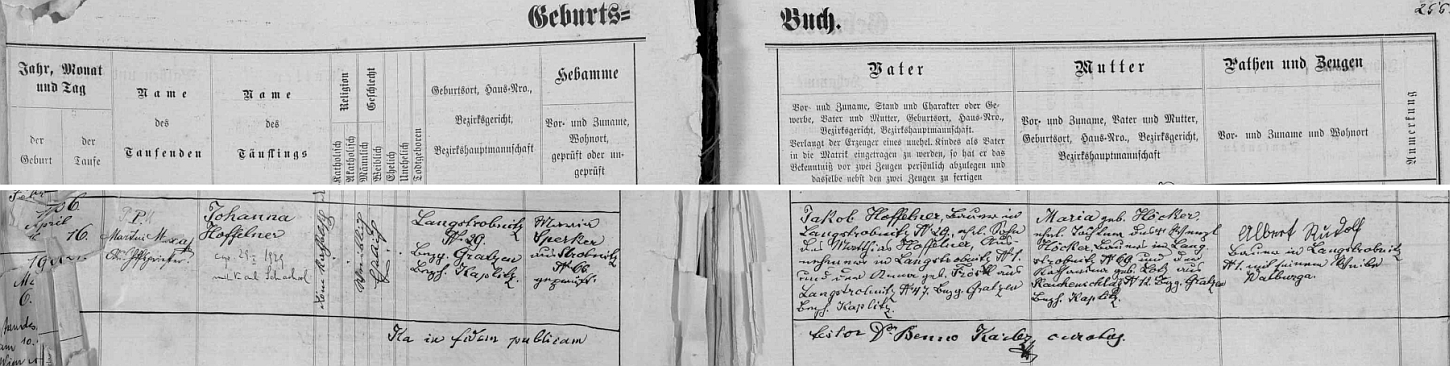 Geburts=
Buch.
Jahr, Monat
und Tag
der
Geburt
der
Taufe
Name
des
Taufenden
Name
des
Täuflings
Religion
Katholisch
Akatholisch
Geschlecht
Männlich
Weiblich
Ehelich
Unehelich
Todtgeboren
Geburtsort, Haus-Nro.,
Bezirksgericht,
Bezirkshauptmannschaft
Hebamme
Vor- und Zuname,
Wohnort,
geprüft oder un-
geprüft
Vater
Vor- und Zuname, Stand und Charakter oder Ge-
werbe, Vater und Mutter, Geburtsort, Haus-Nro.,
Bezirksgericht, Bezirkshauptmannschaft.
Verlangt der Erzenger eines unehel. Kindes als Vater
in die Matrik eingetragen zu werden, so hat er das
Bekenntniß vor zwei Zeugen persönlich abzulegen und
dasselbe nebst den zwei Zeugen zu fertigen
Mutter
Vor- und Zuname, Vater und Mutter,
Geburtsort, Haus-Nro., Bezirksgericht,
Bezirkshauptmannschaft
Pathen und Zeugen
Vor- und Zuname und Wohnort
Anmerkung
6.
April
16.
P.
Johanna
Hoffelner
Langstrobnitz
N. 29.
Bezg. Gratzen
Bezh. Kaplitz.
Maria
aus Strobnitz
N. 66.
geprüft.
Jakob Hoffelner, Bauer in
Langstrobnitz N. 29, ehl. Sohn
des Matthias Hoffelner, Aus-
nehmers in Langstrobnitz N. 1.
und der Anna geb.
Langstrobnitz N. 47. Bezg. Gratzen
Bezh. Kaplitz.
Maria geb. Höcker
ehel. Tochter des Wenzl
Höcker Bauers in Lang-
strobnitz N. 60 und der
Katharina geb. Lotz aus
Rauhenschlag N. 12. Bezg. Gratzen
Bezh. Kaplitz.
Albert Rudolf
Bauer in Langstrobnitz
N. 1. mit seinem Weibe
Walburga.
Ita in fidem publicam
testor Dr. Benno curatus.